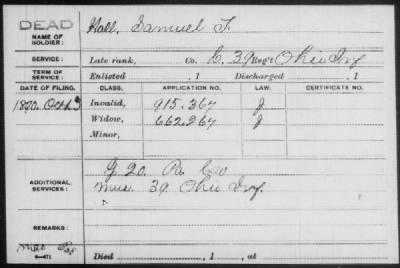 DEAD
NAME OF SOLDIER: Hall, Samuel T.
SERVICE: Late rank, Co. C. 39 Reg't Ohio Inf
TERM OF SERVICE: Enlisted , 1 Discharged , 1
DATE OF FILING. CLASS. APPLICATION NO. LAW. CERTIFICATE NO.
1890. Oct. Invalid, 915.367 J
Widow, 662.267 J
Minor,
ADDITIONAL SERVICES: G 20. Pa Cav
Mus. 39 Ohio Inf.
REMARKS:
Died , 1 , at